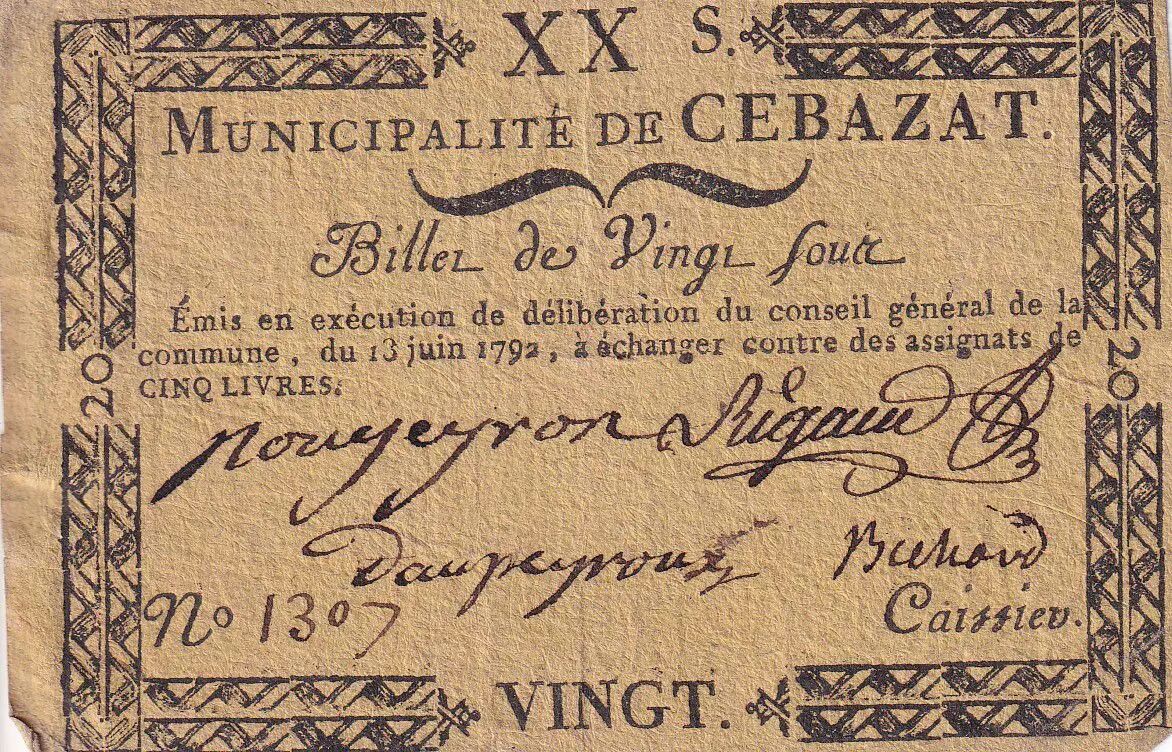 XX S.
MUNICIPALITÉ DE CEBAZAT.
Billet de Vingt sous
Émis en exécution de délibération du conseil général de la
commune, du 13 juin 1792, à échanger contre des assignats de
CINQ LIVRES.
20
20
nouyeyron Rigaud
daupeyroux Buchard
No 1307 Caissier.
VINGT.